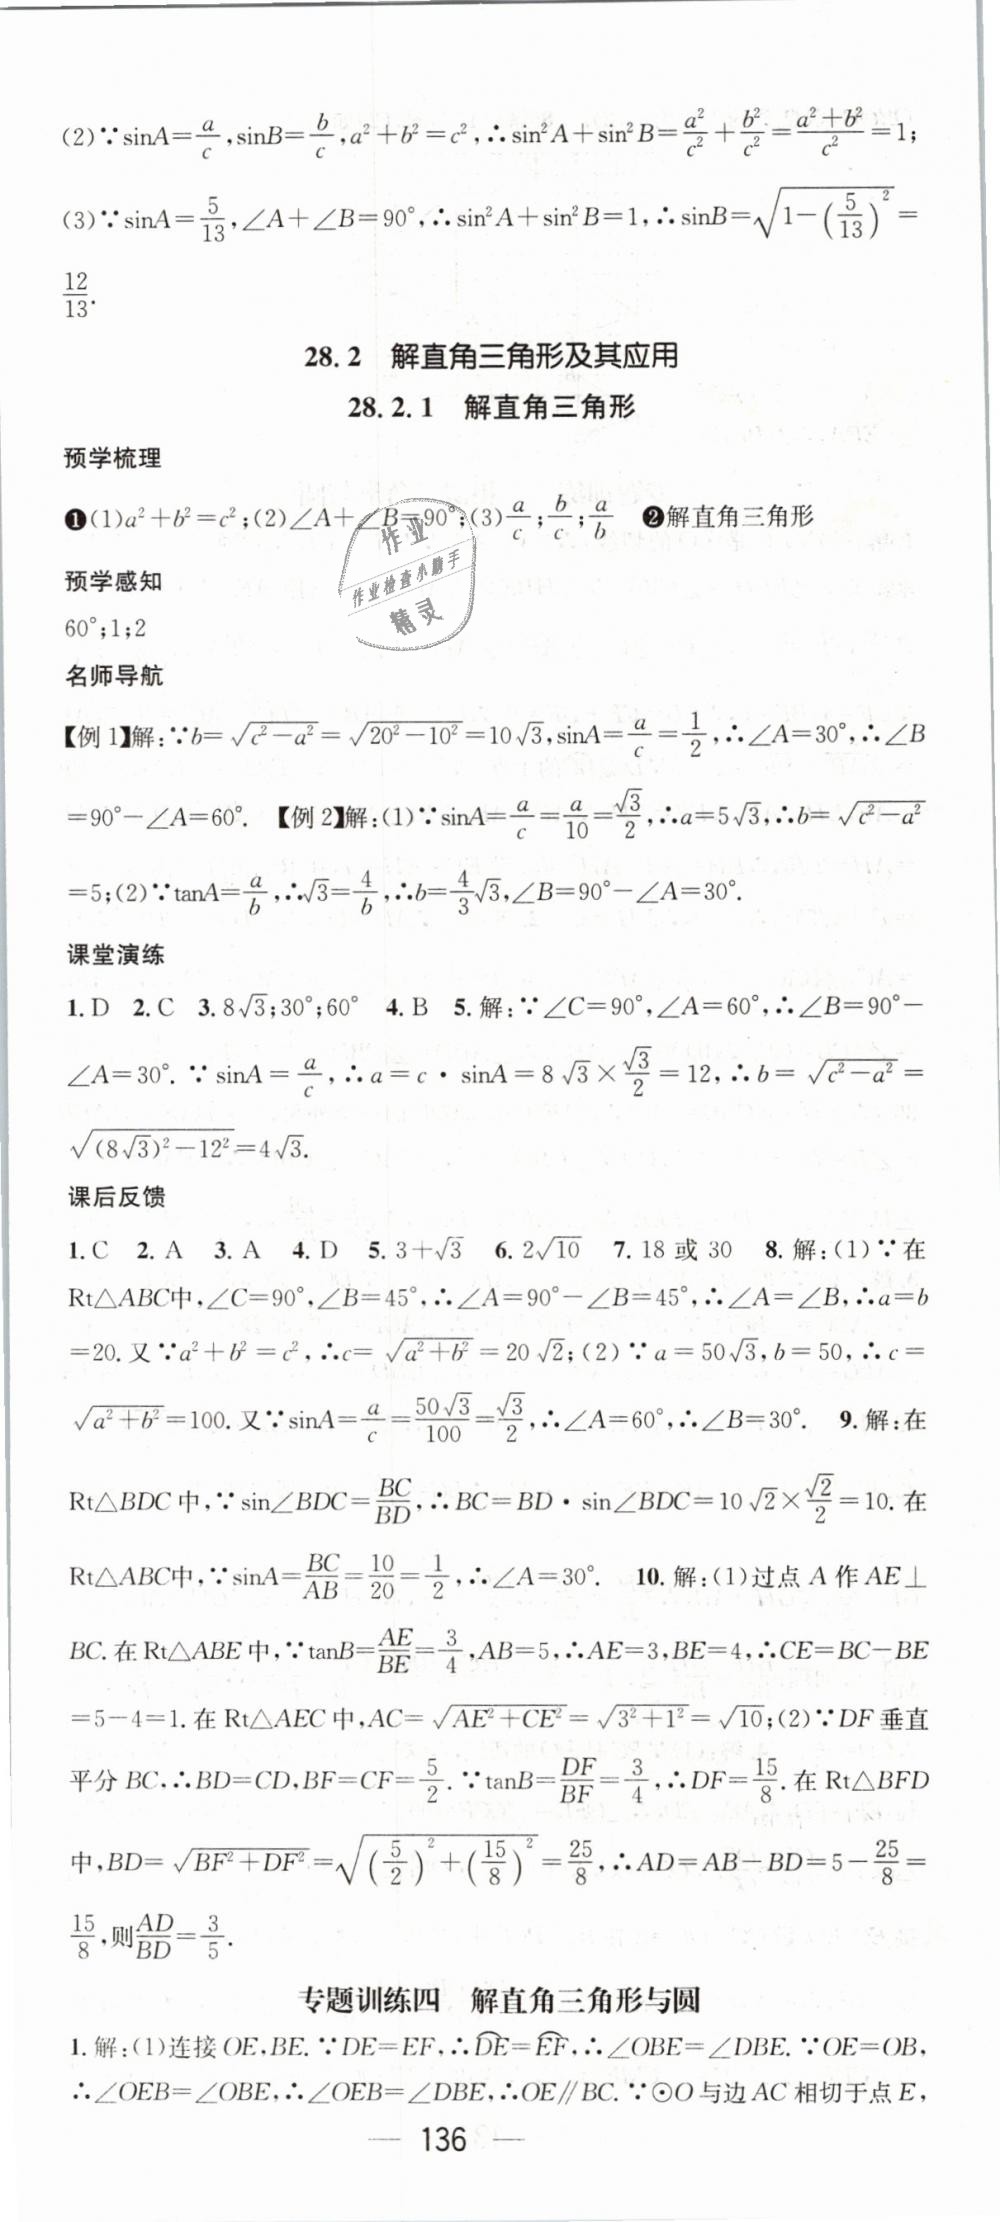 (2)∵sinA=a/c,sinB=b/c,a²+b²=c²,∴sin²A+sin²B=a²/c²+b²/c²=(a²+b²)/c²=1;
(3)∵sinA=5/13,∠A+∠B=90°,∴sin²A+sin²B=1,∴sinB=√(1-(5/13)²)=
12/13.
28.2 解直角三角形及其应用
28.2.1 解直角三角形
预学梳理
❶(1)a²+b²=c²;(2)∠A+∠B=90°;(3)a/c;b/c;a/b ❷解直角三角形
预学感知
60°;1;2
名师导航
【例1】解:∵b=√(c²-a²)=√(20²-10²)=10√3,sinA=a/c=1/2,∴∠A=30°,∴∠B
=90°-∠A=60°. 【例2】解:(1)∵sinA=a/c=a/10=√3/2,∴a=5√3,∴b=√(c²-a²)
=5;(2)∵tanA=a/b,∴√3=4/b,∴b=4/3√3,∠B=90°-∠A=30°.
课堂演练
1.D 2.C 3.8√3;30°;60° 4.B 5.解:∵∠C=90°,∠A=60°,∴∠B=90°-
∠A=30°.∵sinA=a/c,∴a=c·sinA=8√3×√3/2=12,∴b=√(c²-a²)=
√((8√3)²-12²)=4√3.
课后反馈
1.C 2.A 3.A 4.D 5.3+√3 6.2√10 7.18或30 8.解:(1)∵在
Rt△ABC中,∠C=90°,∠B=45°,∴∠A=90°-∠B=45°,∴∠A=∠B,∴a=b
=20.又∵a²+b²=c²,∴c=√(a²+b²)=20√2;(2)∵a=50√3,b=50,∴c=
√(a²+b²)=100.又∵sinA=a/c=50√3/100=√3/2,∴∠A=60°,∴∠B=30°. 9.解:在
Rt△BDC中,∵sin∠BDC=BC/BD,∴BC=BD·sin∠BDC=10√2×√2/2=10.在
Rt△ABC中,∵sinA=BC/AB=10/20=1/2,∴∠A=30°. 10.解:(1)过点A作AE⊥
BC.在Rt△ABE中,∵tanB=AE/BE=3/4,AB=5,∴AE=3,BE=4,∴CE=BC-BE
=5-4=1.在Rt△AEC中,AC=√(AE²+CE²)=√(3²+1²)=√10;(2)∵DF垂直
平分BC,∴BD=CD,BF=CF=5/2.∵tanB=DF/BF=3/4,∴DF=15/8.在Rt△BFD
中,BD=√(BF²+DF²)=√((5/2)²+(15/8)²)=25/8,∴AD=AB-BD=5-25/8=
15/8,则AD/BD=3/5.
专题训练四 解直角三角形与圆
1.解:(1)连接OE,BE.∵DE=EF,∴D͡E=E͡F,∴∠OBE=∠DBE.∵OE=OB,
∴∠OEB=∠OBE,∴∠OEB=∠DBE,∴OE∥BC.∵⊙O与边AC相切于点E,
— 136 —
作业
作业检查小助手
精灵